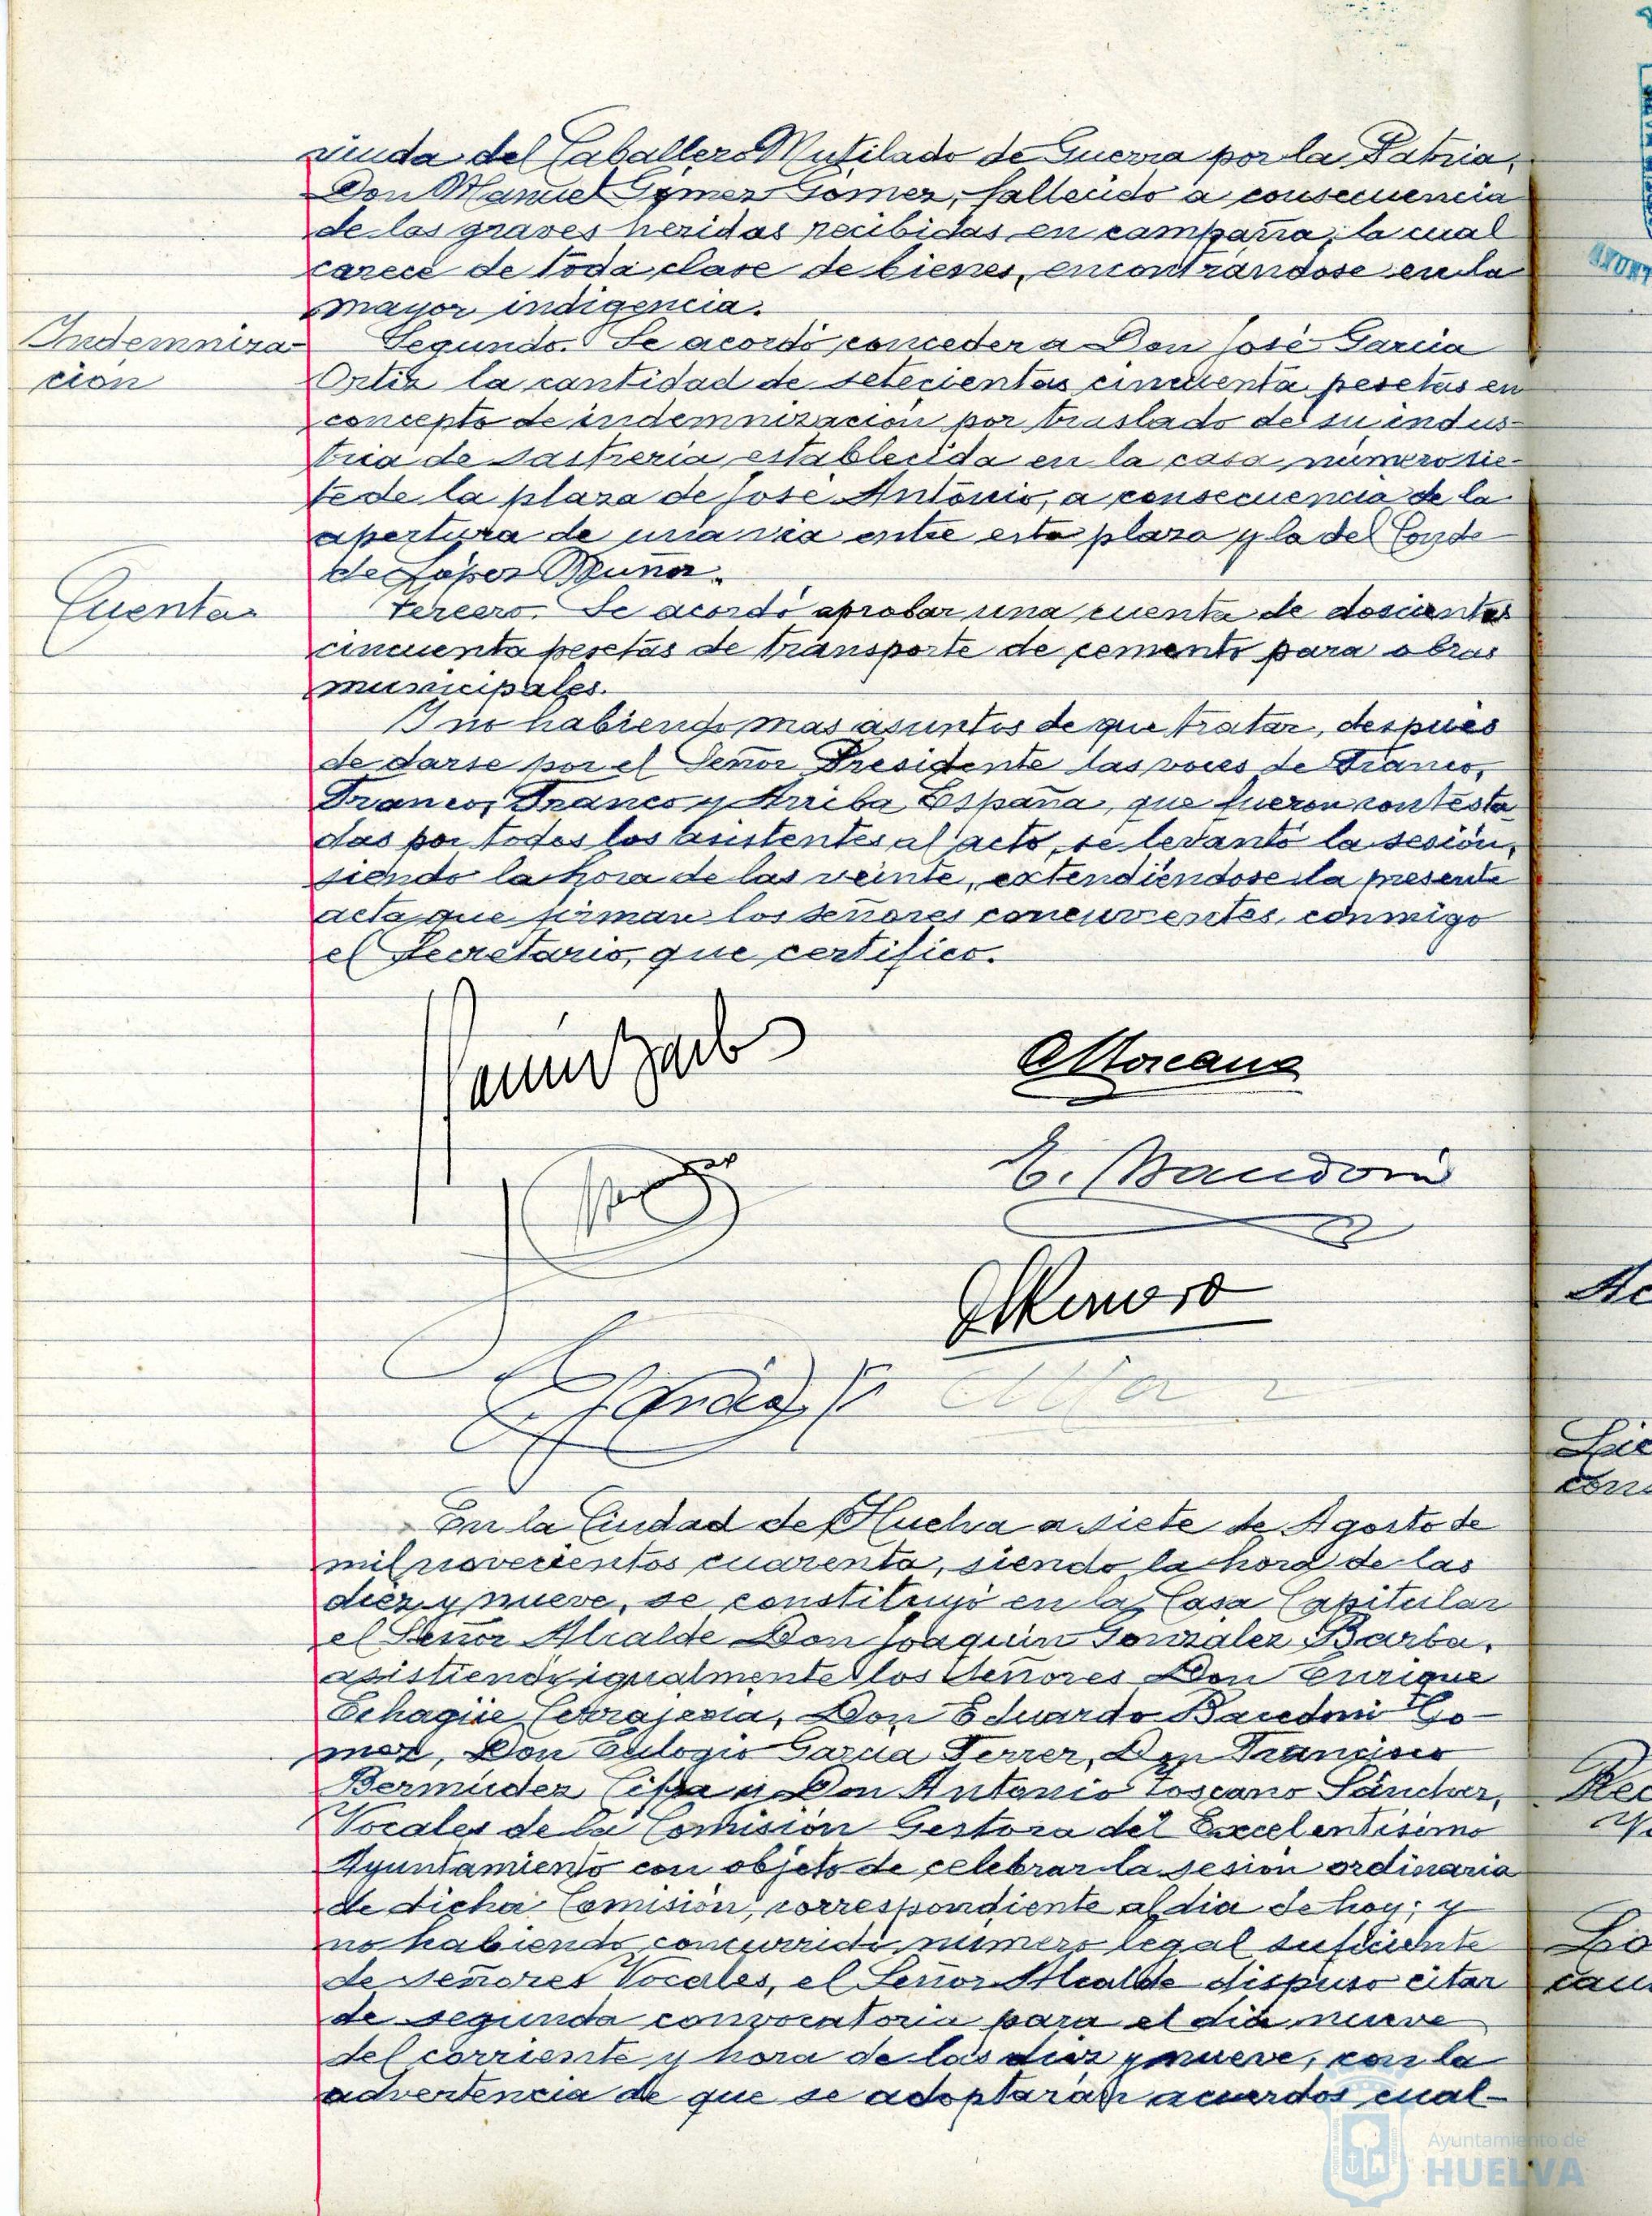 viuda del Caballero Mutilado de Guerra por la Patria,
Don Manuel Gómez Gómez, fallecido a consecuencia
de las graves heridas recibidas en campaña, la cual
carece de toda clase de bienes, encontrándose en la
mayor indigencia.
Indemniza-
ción
Segundo. Se acordó conceder a Don José García
Ortiz la cantidad de setecientas cincuenta pesetas en
concepto de indemnización por traslado de su indus-
tria de sastrería establecida en la casa número sie-
te de la plaza de José Antonio, a consecuencia de la
apertura de una via entre esta plaza y la del Conde
de López Muñoz.
Cuentas
Tercero. Se acordó aprobar una cuenta de doscientas
cincuenta pesetas de transporte de cemento para obras
municipales.
Y no habiendo mas asuntos de que tratar, después
de darse por el Señor Presidente las voces de Franco,
Franco, Franco y Arriba España, que fueron contesta
das por todos los asistentes al acto, se levantó la sesión,
siendo la hora de las veinte, extendiéndose la presente
acta que firman los señores concurrentes, conmigo
el Secretario, que certifico.
A Toscano
E. Baudoni
En la Ciudad de Huelva a siete de Agosto de
mil novecientos cuarenta, siendo la hora de las
diez y nueve, se constituyó en la Casa Capitular
el Señor Alcalde Don Joaquín González Barba,
asistiendo igualmente los Señores Don Enrique
Echagüe Don Eduardo Go-
mez, Don Eulogio García Ferrer, Don Francisco
Bermúdez y Don Antonio Toscano Sánchez,
Vocales de la Comisión Gestora del Excelentísimo
Ayuntamiento con objeto de celebrar la sesión ordinaria
de dicha Comisión, correspondiente al dia de hoy; y
no habiendo concurrido número legal suficiente
de señores Vocales, el Señor Alcalde dispuso citar
de segunda convocatoria para el dia nueve
del corriente y hora de las diez y nueve, con la
advertencia de que se adoptarán acuerdos cual-
Ayuntamiento de
HUELVA